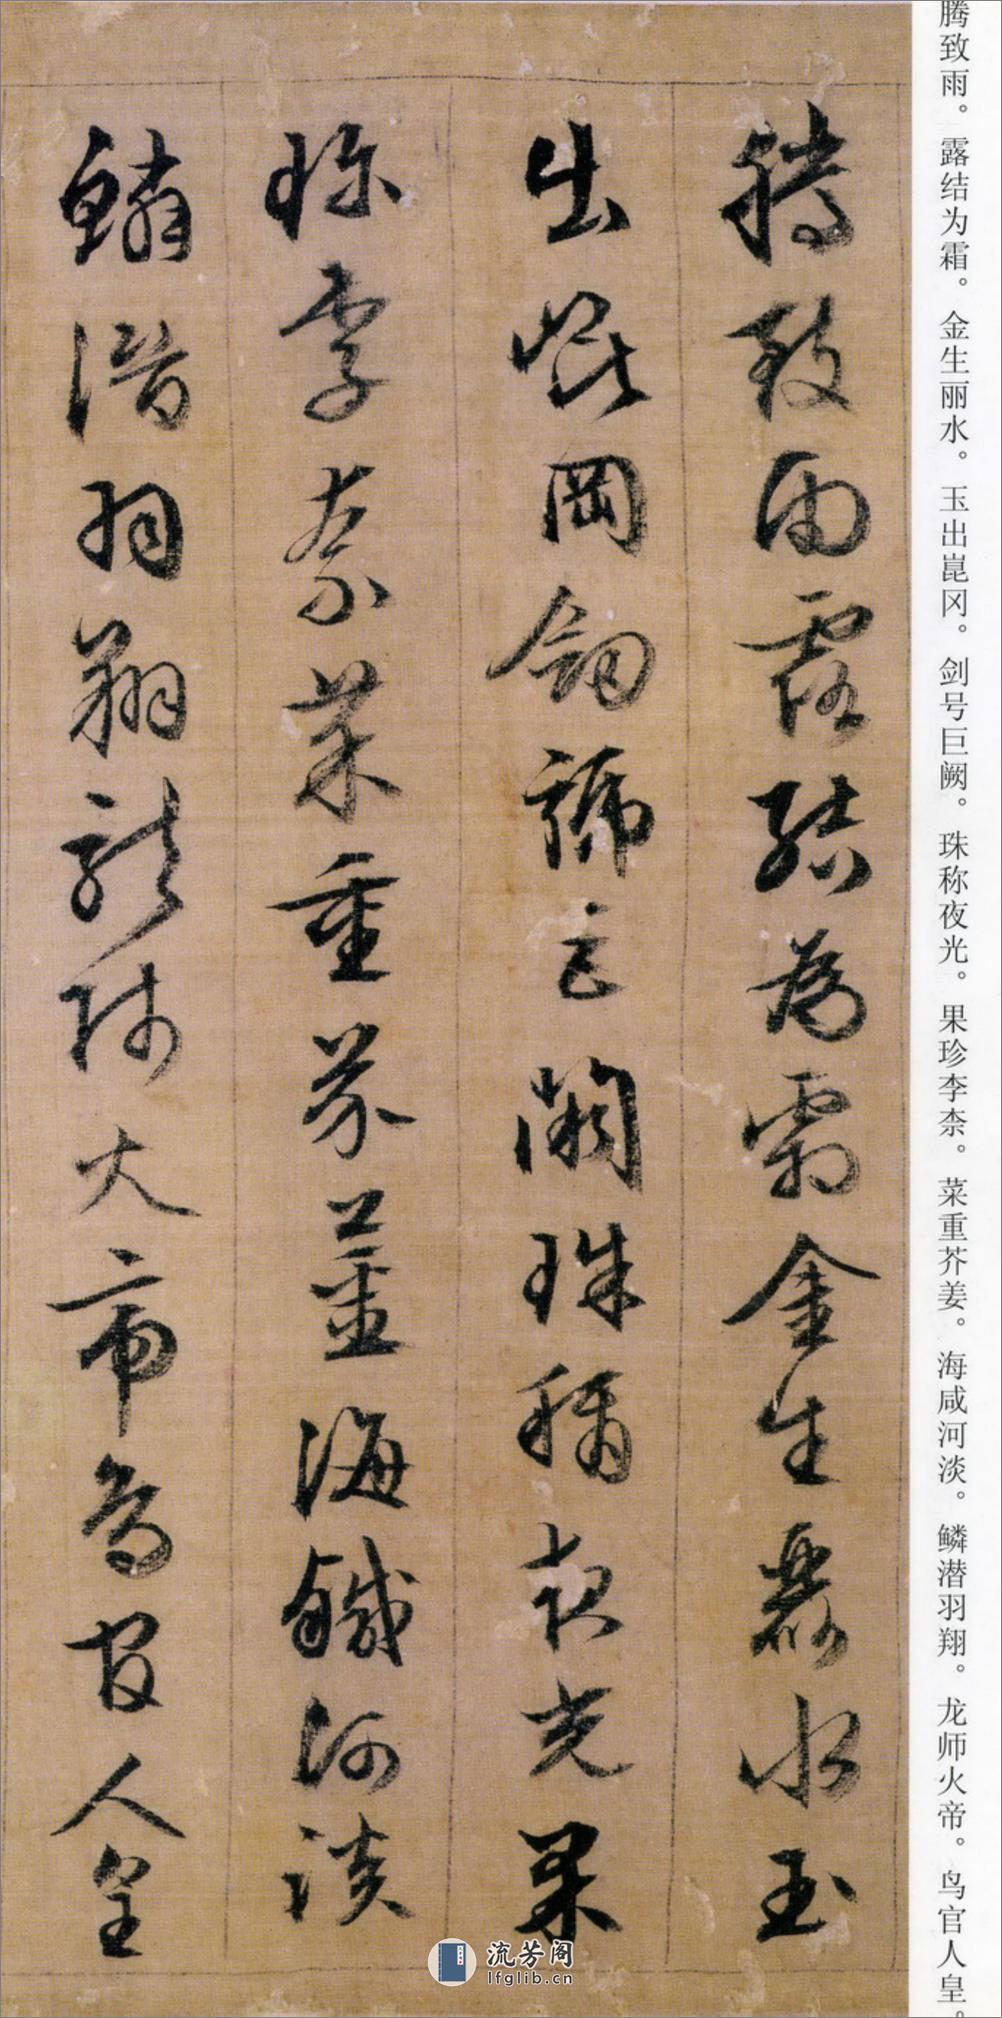 腾致雨。露结为霜。金生丽水。玉出崑冈。剑号巨阙。珠称夜光。果珍李柰。菜重芥姜。海咸河淡。鳞潜羽翔。龙师火帝。鸟官人皇。
騰致雨露結為霜金生麗水玉
出崐岡劍號巨闕珠稱夜光果
珍李柰菜重芥薑海鹹河淡
鱗潛羽翔龍師火帝鳥官人皇
流芳阁
lfglib.cn